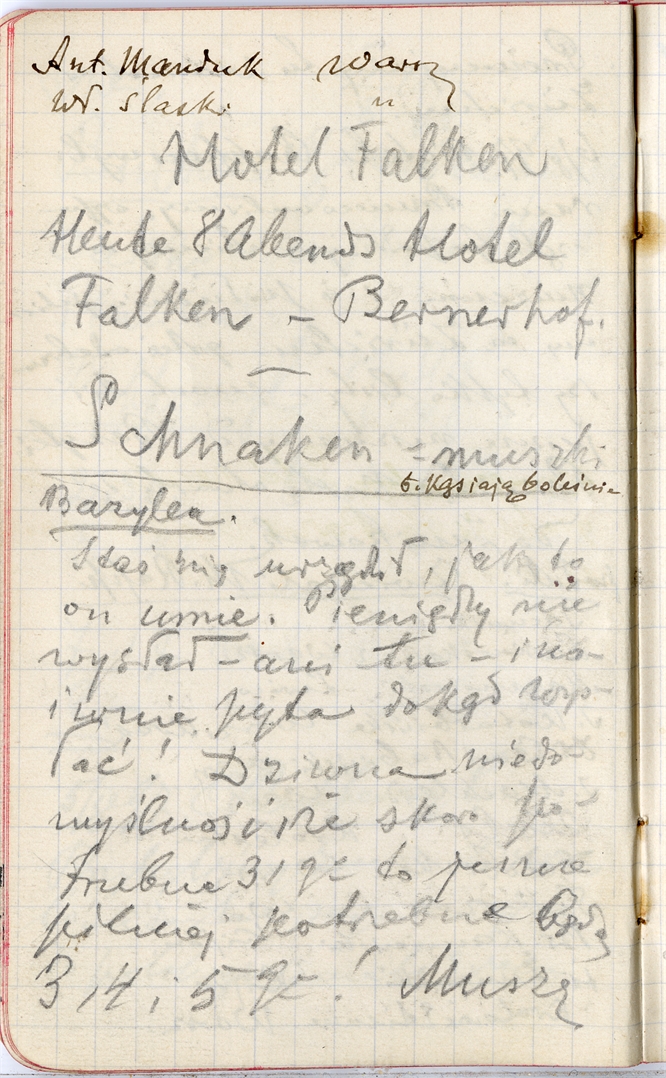 Ant. Manduk Warsz
Wł. Śląski "
Hotel Falken
Heute 8 Abends Hotel
Falken – Bernerhof.
–
Schnaken = muszki
b. kąsiają boleśnie
Bazylea.
Staś się urządził, jak to
on umie. Pieniędzy nie
wysłał – ani tu – i na-
iwnie pyta dokąd wysy-
łać! Dziwna niedo-
myślność, że skoro po-
trzebne 3 / 9- to jeszcze
pilniej potrzebne będą
3, 4 i 5 9-! Muszę